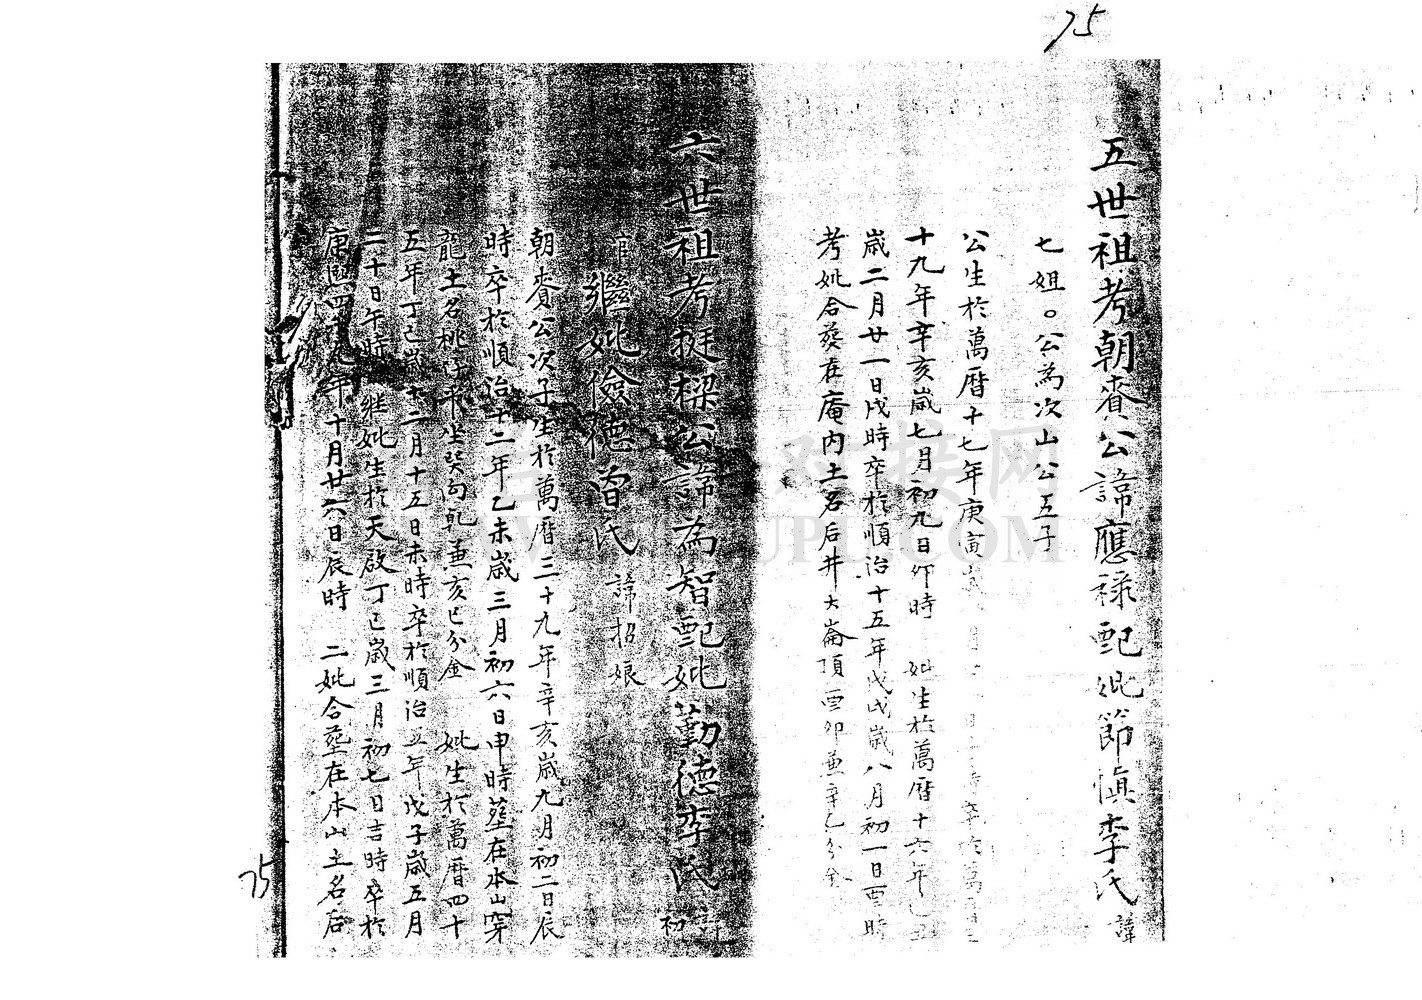 75
五世祖考朝賚公諱應祿配妣節慎李氏 諱
七姐。公為次山公五子
公生於萬曆十七年庚寅歲 月 日 時卒於萬曆三
十九年辛亥歲七月初九日卯時 妣生於萬曆十六年己丑
歲二月廿一日戌時卒於順治十五年戊戌歲八月初一日酉時
考妣合葬在庵內土名后井大崙頂酉卯兼辛乙分金
六世祖考挺樑公諱為智配妣勤德李氏 諱初
官 繼妣儉德曾氏 諱招娘
朝賚公次子生於萬曆三十九年辛亥歲九月初二日辰
時卒於順治十二年乙未歲三月初六日申時葬在本山穿
龍土名桃 坪坐癸向乾兼亥巳分金 妣生於萬曆四十
五年丁巳歲十二月十五日未時卒於順治五年戊子歲五月
二十日午時 繼妣生於天啟丁巳歲三月初七日吉時卒於
康熙四十九年十月廿六日辰時 二妣合葬在本山土名后
75
对接网